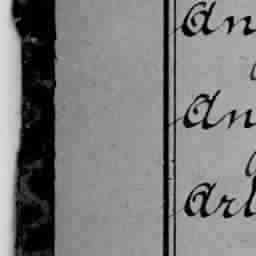 An
An
Arl